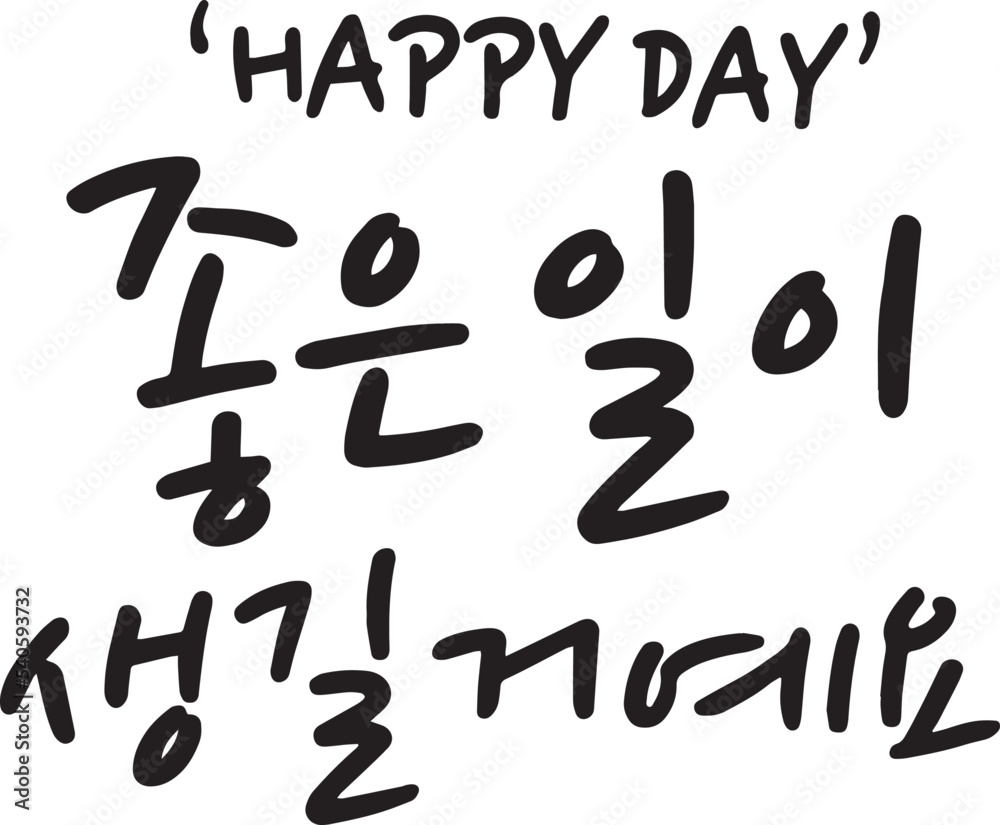 ‘HAPPY DAY’
좋은 일이
생길 거예요
Adobe Stock | #540593732